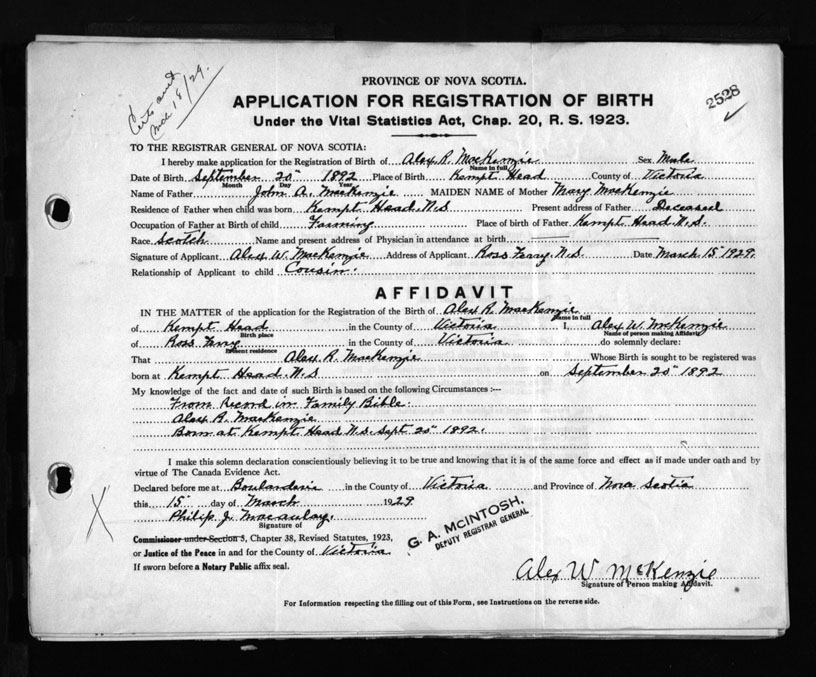 Certs and
Mar 18/29.
2528
PROVINCE OF NOVA SCOTIA.
APPLICATION FOR REGISTRATION OF BIRTH
Under the Vital Statistics Act, Chap. 20, R. S. 1923.
TO THE REGISTRAR GENERAL OF NOVA SCOTIA:
I hereby make application for the Registration of Birth of Alex R. MacKenzie Sex Male
Name in full
Date of Birth September 20th 1892 Place of Birth Kempt Head County of Victoria
Month Day Year
Name of Father John A. MacKenzie MAIDEN NAME of Mother Mary MacKenzie
Residence of Father when child was born Kempt Head, N.S Present address of Father Deceased
Occupation of Father at Birth of child Farming Place of birth of Father Kempt Head N.S.
Race Scotch Name and present address of Physician in attendance at birth
Signature of Applicant Alex W. MacKenzie Address of Applicant Ross Ferry, N.S. Date March 15th 1929.
Relationship of Applicant to child Cousin.
AFFIDAVIT
IN THE MATTER of the application for the Registration of the Birth of Alex R. MacKenzie
Name in full
of Kempt Head in the County of Victoria I, Alex W. McKenzie
Birth place Name of person making Affidavit
of Ross Ferry in the County of Victoria do solemnly declare:
Present residence
That Alex R. MacKenzie Whose Birth is sought to be registered was
born at Kempt Head N.S on September 20th 1892
My knowledge of the fact and date of such Birth is based on the following Circumstances :—
From Record in Family Bible.
Alex R. MacKenzie
Born at Kempt Head N.S. Sept 20th 1892.
I make this solemn declaration conscientiously believing it to be true and knowing that it is of the same force and effect as if made under oath and by
virtue of The Canada Evidence Act.
Declared before me at Boularderie in the County of Victoria and Province of Nova Scotia
this 15 day of March 1929
Philip J. Macaulay.
Signature of
Commissioner under Section 5, Chapter 38, Revised Statutes, 1923,
or Justice of the Peace in and for the County of Victoria
If sworn before a Notary Public affix seal.
G. A. MCINTOSH,
DEPUTY REGISTRAR GENERAL
Alex W McKenzie
Signature of Person making Affidavit.
For Information respecting the filling out of this Form, see Instructions on the reverse side.